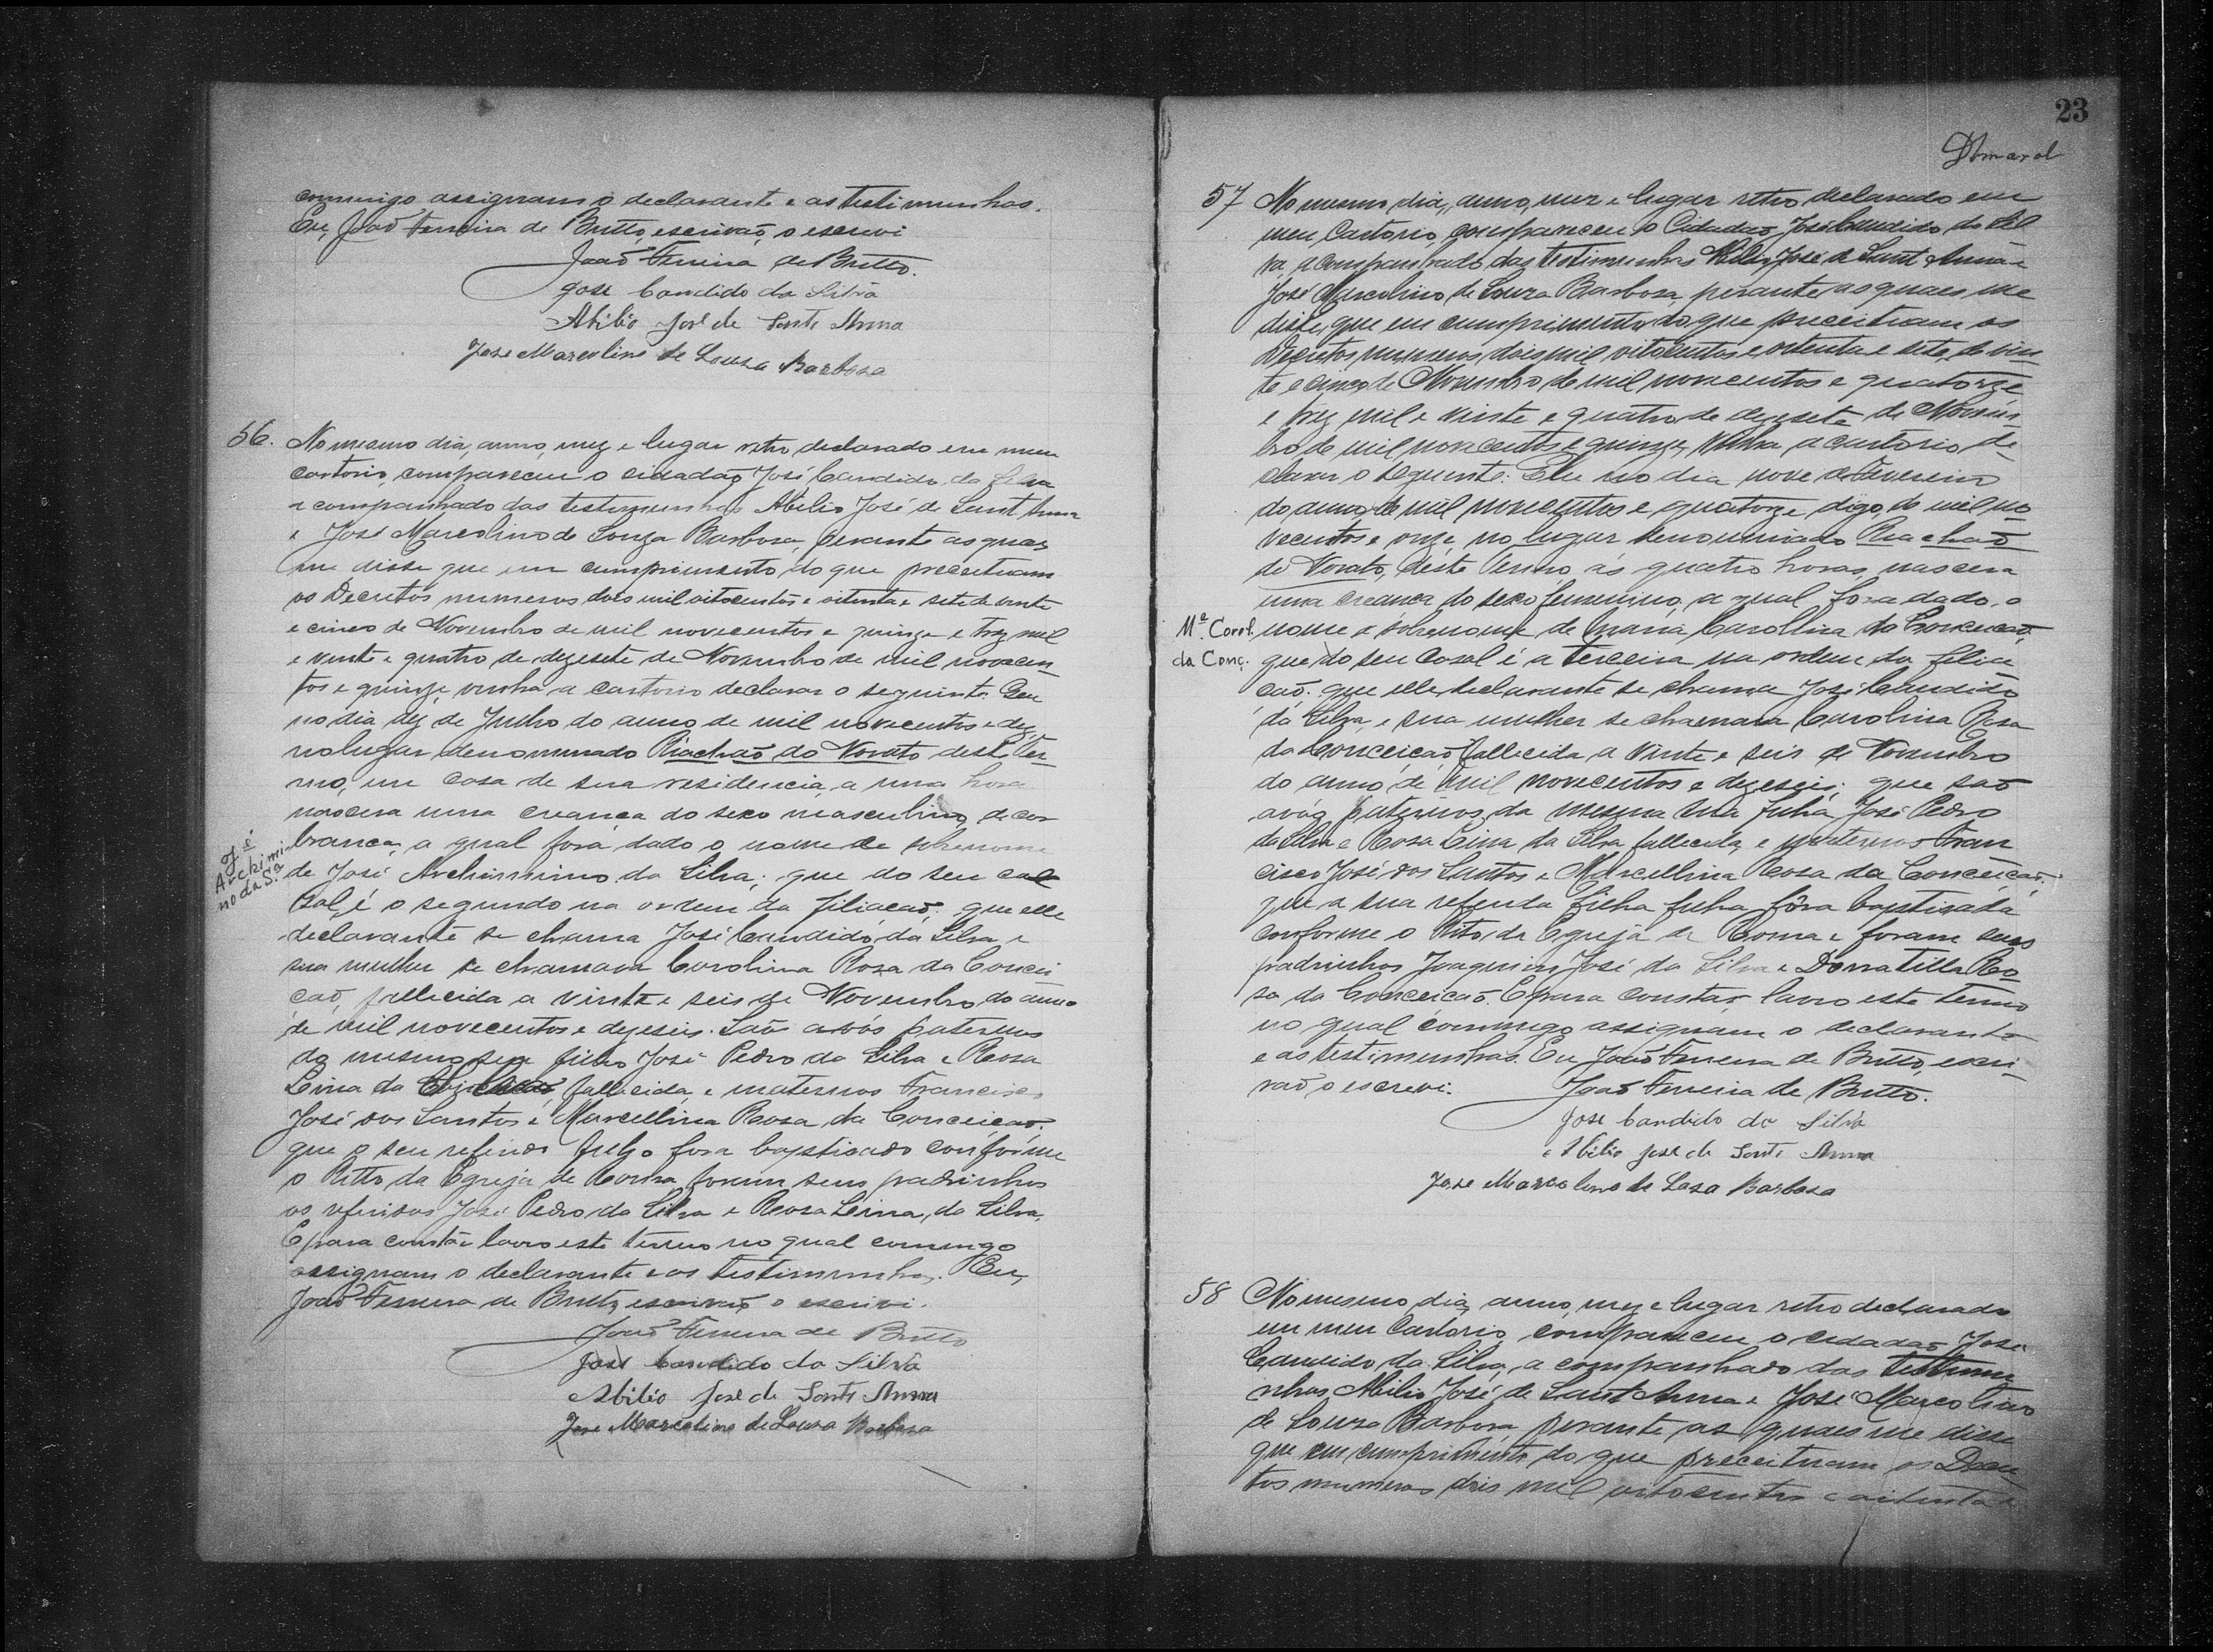 commigo assignam o declarante e as testimunhas.
Eu, João Ferreira de Britto, escrivão, o escrevi
João Ferreira de Britto.
Jose Candido da Silva
Abilio José de Sant Anna
Jose Marcolino de Souza Barbosa
56. No mesmo dia, anno, mez e lugar retro declarado em meu
cartorio, compareceu o cidadão José Candido da Silva
acompanhado das testemunhas Abilio José de Sant Anna
e José Marcolino de Souza Barbosa, perante as quaes
me disse que em cumprimento do que preceituam
os Decretos numeros dois mil oitocentos e oitenta e sete de vinte
e cinco de Novembro de mil novecentos e quinze e trez mil
e vinte e quatro de dezesete de Novembro de mil novecen
tos e quinze, vinha a cartorio declarar o seguinte: Que
no dia dez de Julho do anno de mil novecentos e dez,
no lugar denominado Riachão do Norato deste Ter
mo, em casa de sua residencia, a uma hora
nascera uma creança do sexo masculino, de cor
branca, a qual fora dado o nome e sobrenome
Jé
Archimi
no da Sª
de José Archimimo da Silva; que do seu ca
sal é o segundo na ordem da filiacaõ; que elle
declarante se chama José Candido da Silva e
sua mulher se chamava Carolina Rosa da Concei
caõ, fallecida a vinte e seis de Novembro do anno
de mil novecentos e dezeseis. Saõ avós paternos
do mesmo seu filho José Pedro da Silva e Rosa
Lina da fallecida, e maternos Francisco
José dos Santos e Marcellina Rosa da Conceicaõ.
que o seu referido filho fora baptisado conforme
o Ritto da Egreja de Roma, foram seus padrinhos
os referidos José Pedro da Silva e Rosa Lina da Silva.
E para constar lavro este termo no qual commigo
assignam o declarante e as testimunhas. Eu,
João Ferreira de Britto escrivaõ o escrivi.
João Ferreira de Britto
José Candido da Silva
Abilio José de Sant Anna
Jose Marcolino de Souza Barbosa
23
DAmaral
57 No mesmo dia, anno, mez e lugar retro declarado em
meu Cartorio, compareceu o Cidadaõ José Candido da Sil
va, acompanhado das testimunhas Abilio José de Sant Anna e
José Marcolino de Souza Barbosa, perante as quaes me
disse, que em cumprimento do que preceituam os
Decretos numeros dois mil oitocentos e oitenta e sete, de vin
te e cinco de Novembro de mil novecentos e quatorze
e trez mil e vinte e quatro de dezesete de Novem
bro de mil novecentos e quinze, vinha a cartorio de
clarar o seguinte: Que no dia nove de Fevereiro
do anno de mil novecentos e quatorze digo, de mil no
vecentos e onze, no lugar denominado Riachaõ
do Norato, deste Termo, ás quatro horas, nascera
uma creança do sexo femenino, a qual fora dado o
Mª. Carol.
da Conç.
nome e sobrenome de Maria Carollina da Conceicaõ
que do seu casal é a terceira na ordem da filia
caõ. que elle declarante se chama José Candido
da Silva, e sua mulher se chamava Carolina Rosa
da Conceicaõ, fallecida a vinte e seis de Novembro
do anno de mil novecentos e dezeseis; que saõ
avós paternos da mesma sua filha José Pedro
da Silva e Rosa Lina da Silva fallecida, e maternos Fran
cisco José dos Santos e Marcellina Rosa da Conceicaõ;
que a sua referida filha filha fôra baptisada
conforme o Rito da Egreja de Roma e foram seus
padrinhos Joaquim José da Silva e Donatilla Ro
sa da Conceicaõ. E para constar lavro este termo
no qual commigo assignam o declarante
e as testimunhas. Eu, João Ferreira de Britto, escri-
vaõ o escrevi.
João Ferreira de Britto.
José Candido da Silva
Abilio José de Sant Anna
Jose Marcolino de Sosa Barbosa
58 No mesmo dia, anno, mez e lugar retro declarado
em meu Cartorio, compareceu o cidadaõ José
Candido da Silva, acompanhado das testimu
nhas Abilio José de Sant Anna e José Marcolino
de Souza Barbosa, perante as quaes me disse
que em cumprimento do que preceituam os Decre
tos numeros dois mil oitocentos e oitenta e